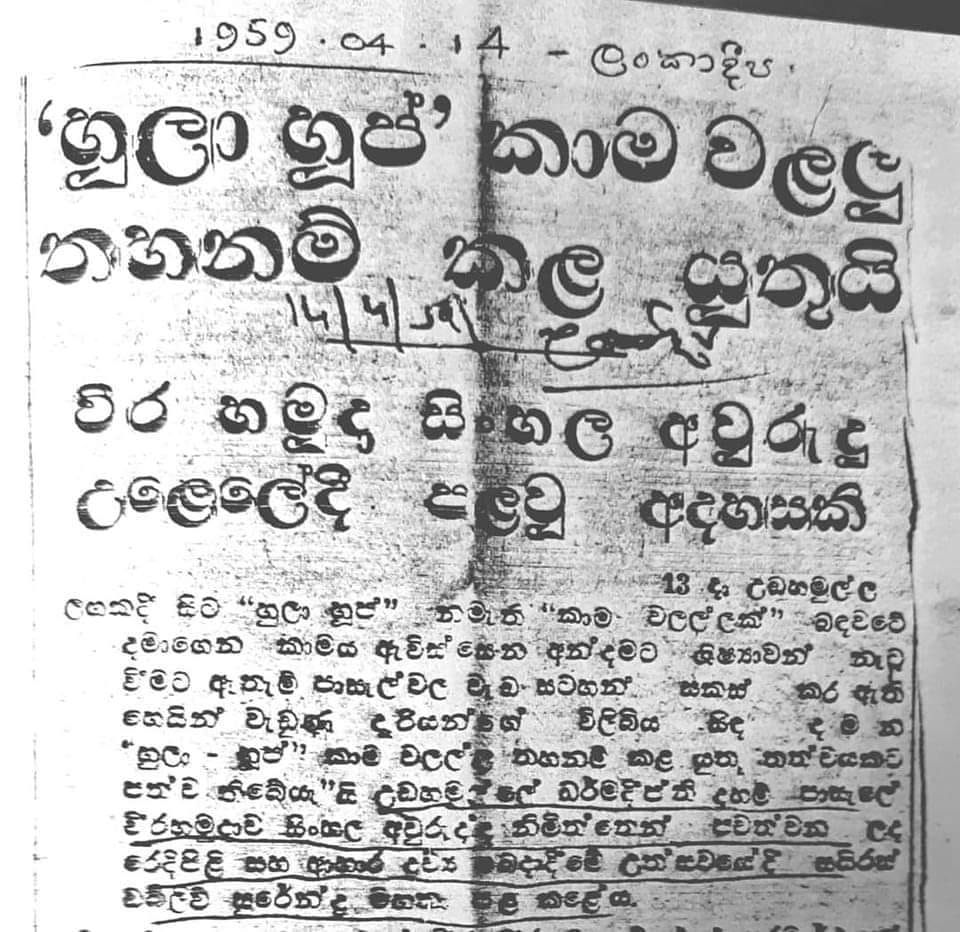 1959.04.14 - ලංකාදීප
‘හුලා හූප්’ කාම වළලු
තහනම් කල යුතුයි
14/4/59
වීර හමුදා සිංහල අවුරුදු
උළෙලේදී පළවූ අදහසකි
13 දා උඩහමුල්ල
ලඟකදී සිට “හුලා හූප්” නමැති “කාම වලල්ලක්” බඳවටේ
දමාගෙන කාමය ඇවිස්සෙන අන්දමට ශිෂ්‍යාවන් නැටූ
වීමට ඇතැම් පාසැල්වල වැඩ සටහන් සකස් කර ඇති
හෙයින් වැඩුණු දූරියන්ගේ විලිබිය සිඳ දමන
“හුලා - හූප්” කාම වලල්ල තහනම් කළ යුතු තත්වයකට
පත්ව තිබේයැ”යි උඩහමුල්ලේ ධර්මදීප්ති දහම් පාසැලේ
වීරහමුදාව සිංහල අවුරුද්ද නිමිත්තෙන් පවත්වන ලද
රෙදිපිළි සහ ආහාර ද්‍රව්‍ය බෙදාදීමේ උත්සවයේදී සයිරස්
ඩබ්ලිව් සුරේන්ද්‍ර මහතා පළ කළේය.